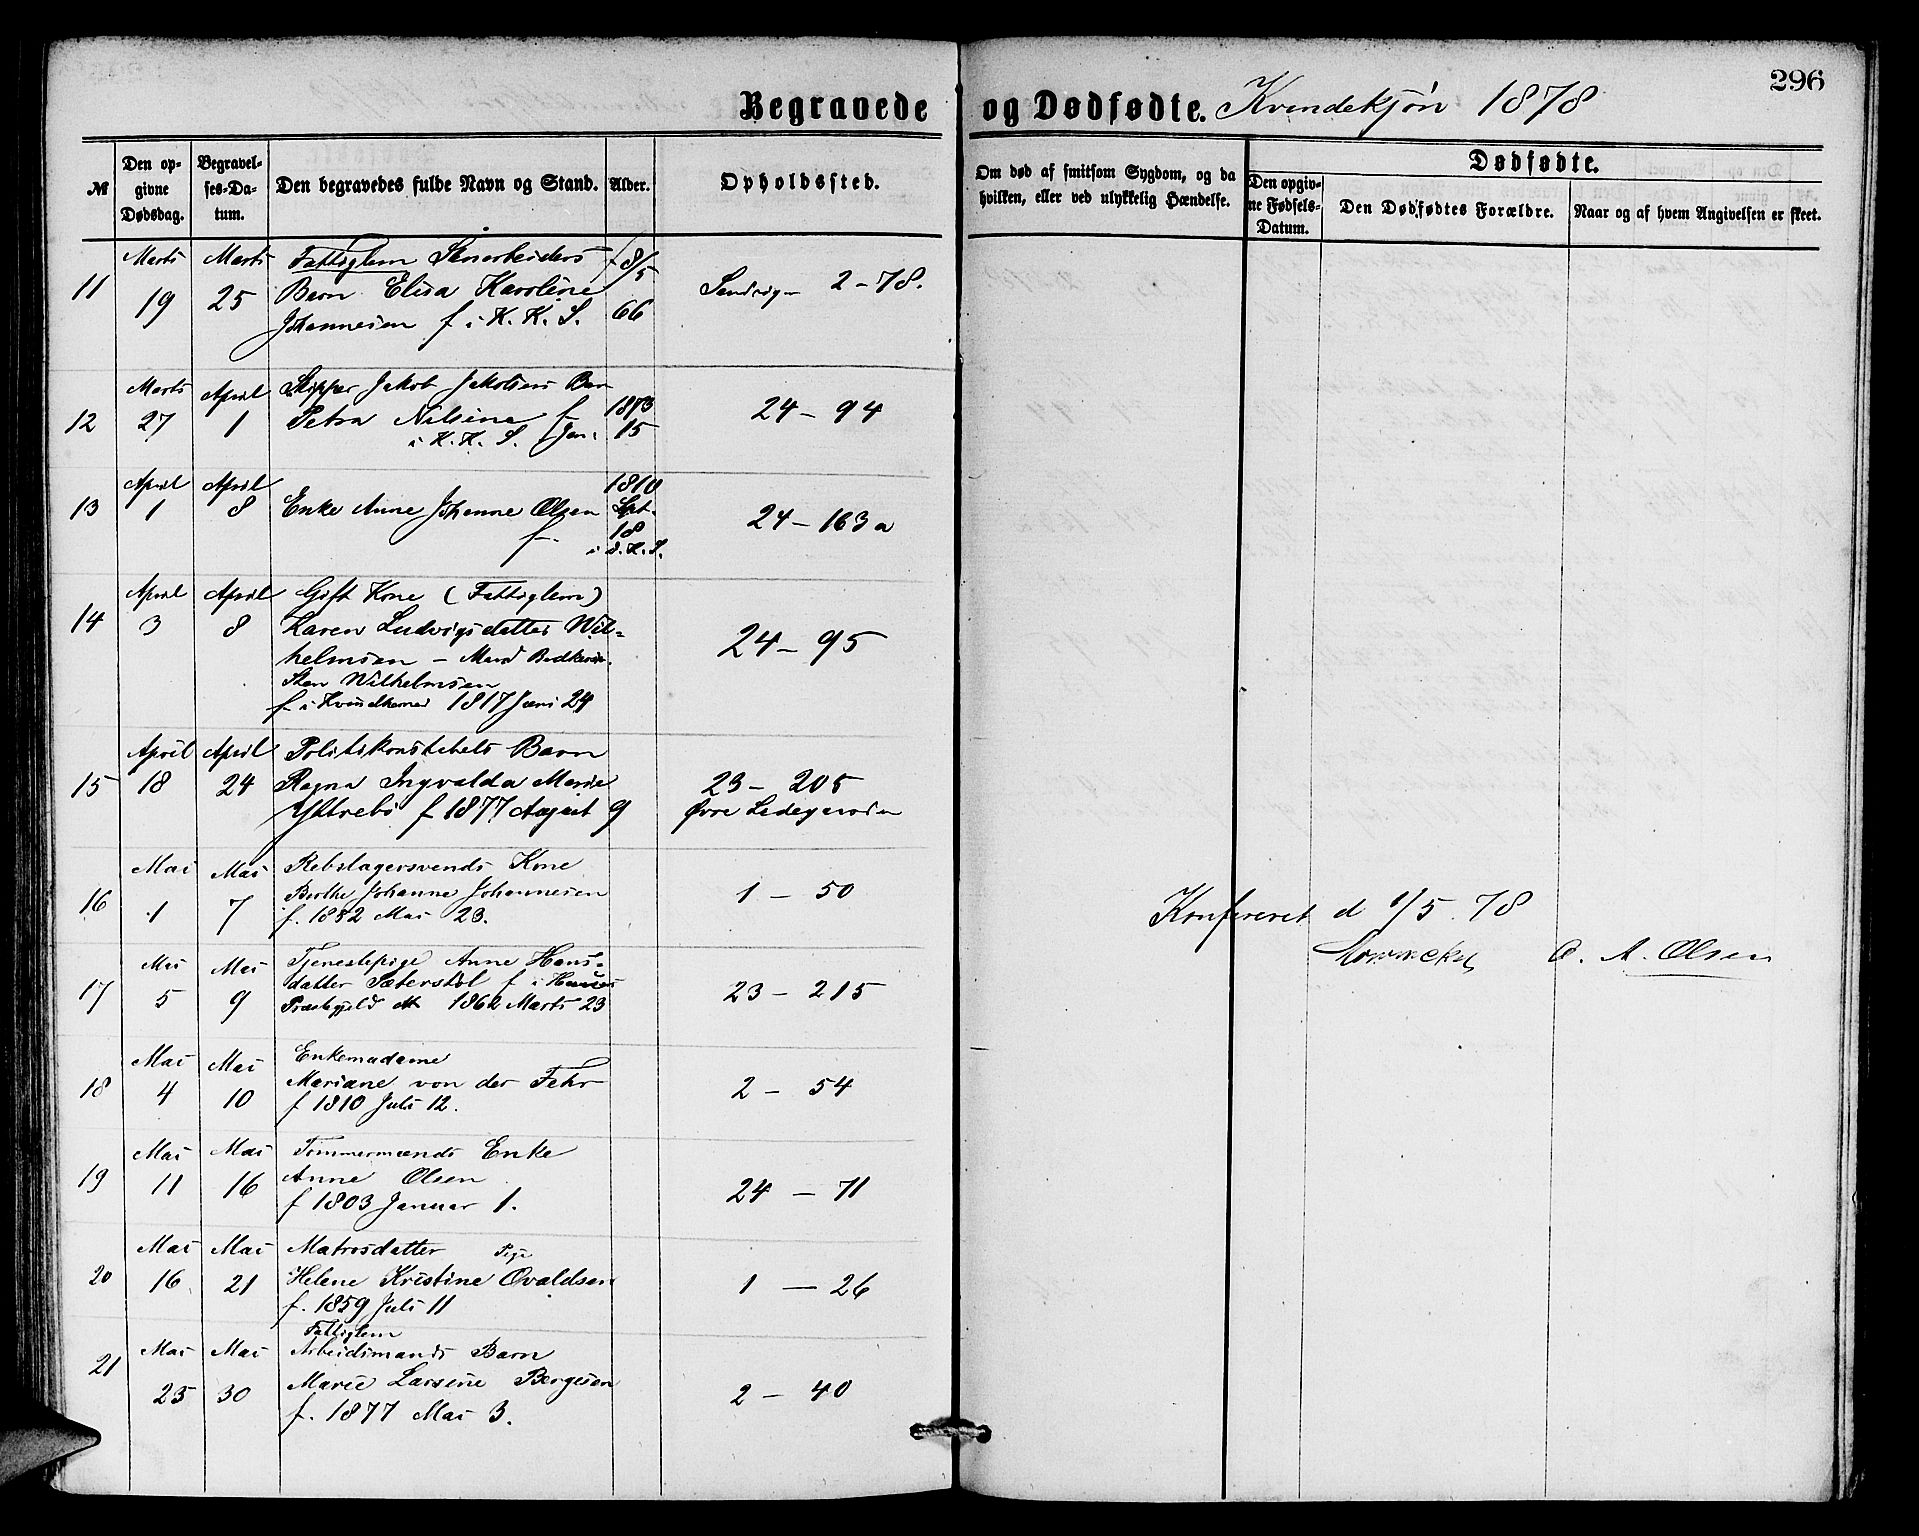 296
Begravede og Dødfødte. Kvindekjøn 1878
№
Den opgivne Dødsdag.
Begravelses-Datum.
Den begravedes fulde Navn og Stand.
Alder.
Opholdssted.
Om død af smitsom Sygdom, og da hvilken, eller ved ulykkelig Hændelse.
Dødfødte.
Den opgivne Fødsels-Datum.
Den Dødfødtes Forældre.
Naar og af hvem Angivelsen er skeet.
Marts Marts Fattiglem Stenarbeiders 8/5
11 19 25 Barn Elisa Karoline Sandvigen 2-78.
Johannesen f i K. K. S. 66
Marts April Skipper Jakob Jakobsens Barn
12 27 1 Petra Nilsine f 1873 24-94
i K. K. S. Jan. 15
April April 1810
13 1 8 Enke Anne Johanne Olsen Spt. 24-163a
f 18
i D. K. S.
April April Gift Kone (Fattiglem)
14 3 8 Karen Ludvigsdatter Wil- 24-95
helmsen - Mand Bødkersv.
Sten Wilhelmsen
f i Kvindherred 1817 Juni 24
April April Politikonstabels Barn
15 18 24 Ragna Ingvalda Marie 23-205
Yttrebø f 1877 August 9 Øvre Ledegaarden
Mai Mai Rebslagersvends Kone
16 1 7 Berthe Johanne Johannesen 1-50
f. 1852 Mai 23.
Konfereret d 1/5 78
O. A. Olsen
Mai Mai Tjenestepige Anne Hans-
17 5 9 datter Sæterstøl f i 23-215
Præstegjeld 1862 Marts 23
Mai Mai Enkemadame
18 4 10 Mariane von der Fehr 2-54
f 1810 Juli 12.
Mai Mai Tømmermands Enke
19 11 16 Anne Olsen 24-71
f 1803 Januar 1.
Mai Mai Matrosdatter Pige
20 16 21 Helene Kristine Ovaldsen 1-26
f. 1859 Juli 11
Fattiglem
Mai Mai Arbeidsmands Barn
21 25 30 Marie Larsine Børgesen 2-40
f. 1877 Mai 3.